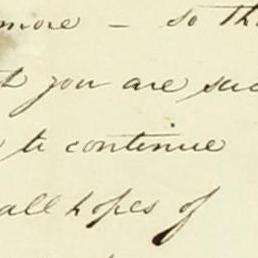 more - so th
you are suc
to continue
all hopes of